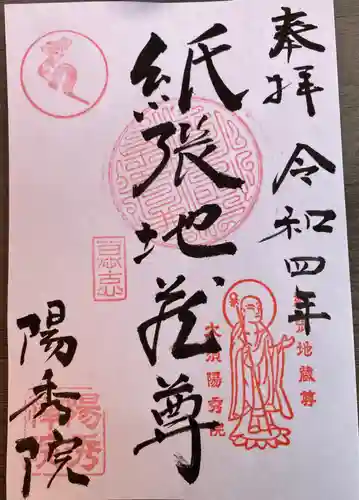 奉拝
令和四年
紙張地蔵尊
陽秀院
地蔵尊
大須陽秀院